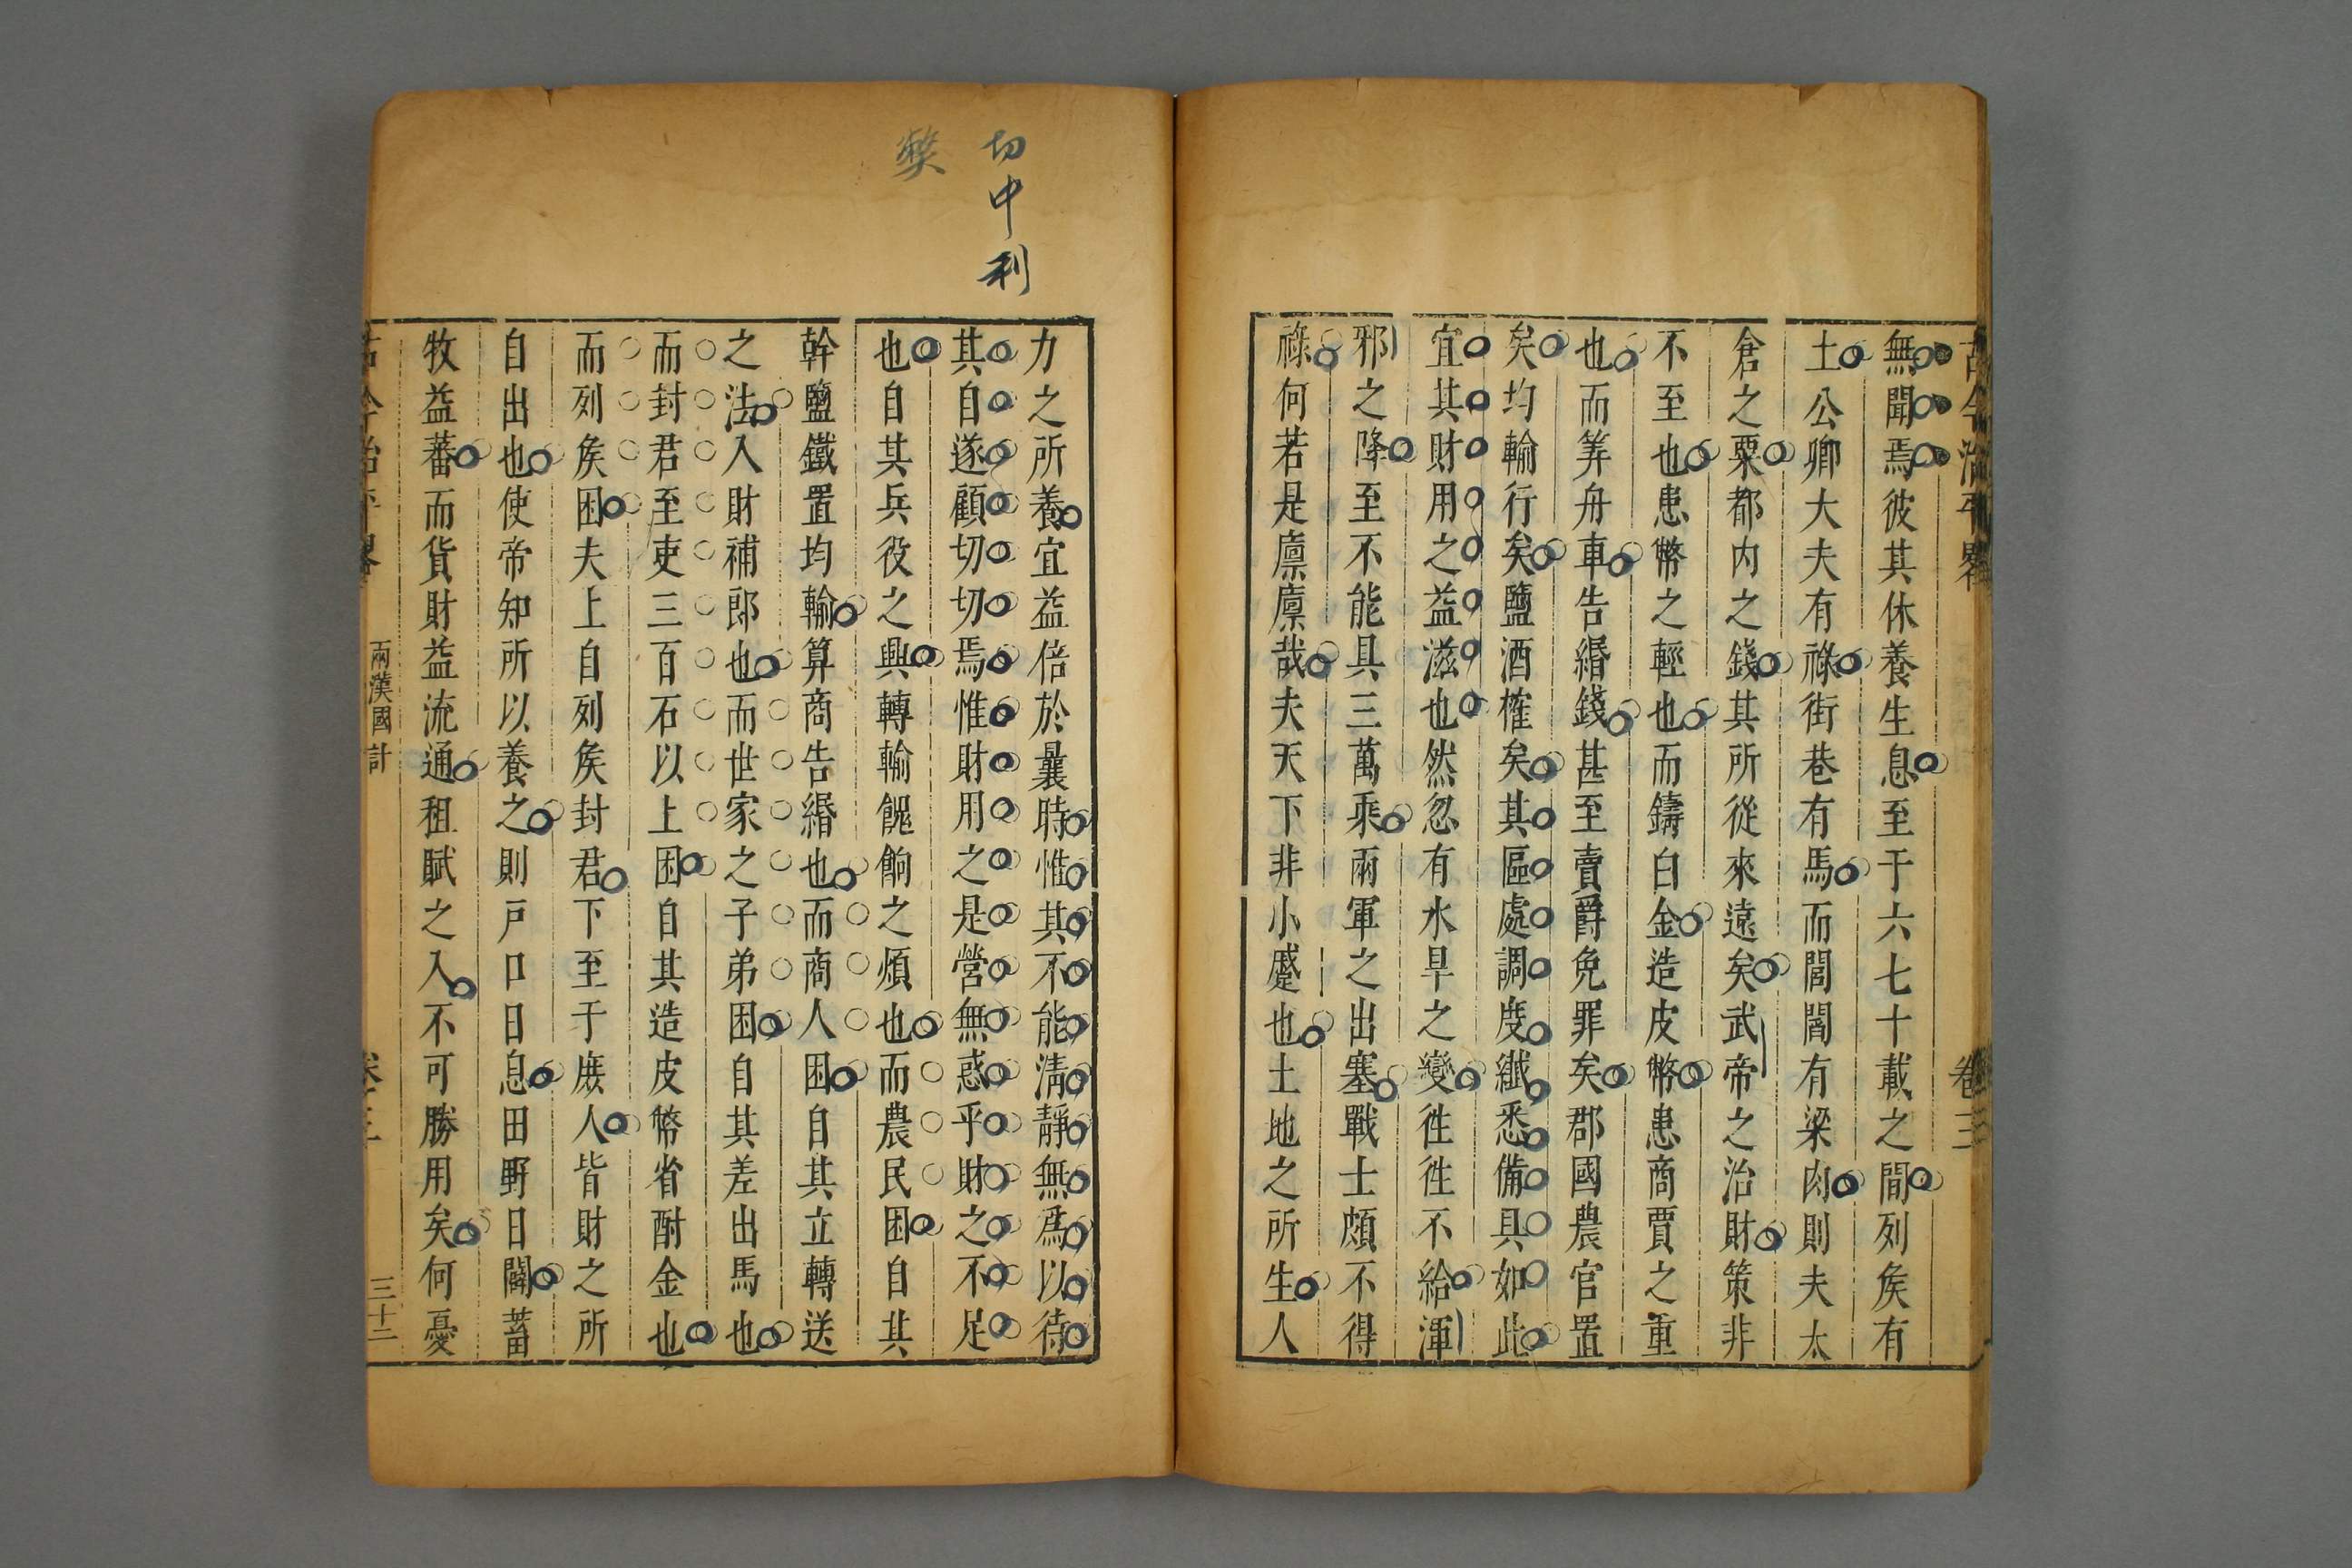 古今治平畧
卷三
無聞焉彼其休養生息至于六七十載之間列矦有
土公卿大夫有祿街巷有馬而閭閻有梁肉則夫太
倉之粟都内之錢其所從來遠矣武帝之治財策非
不至也患幣之輕也而鑄白金造皮幣患商賈之重
也而筭舟車告緡錢甚至賣爵免罪矣郡國農官置
矣均輸行矣鹽酒榷矣其區處調度纎悉備具如此
宜其財用之益滋也然忽有水旱之變徃徃不給渾
邪之降至不能具三萬乘兩軍之出塞戰士頗不得
祿何若是廪廪哉夫天下非小蹙也土地之所生人
切中利
弊
力之所養宜益倍於曩時惟其不能淸靜無爲以待
其自遂顧切切焉惟財用之是營無惑乎財之不足
也自其兵役之興轉輸餽餉之煩也而農民困自其
幹鹽鐵置均輸算商告緡也而商人困自其立轉送
之法入財補郎也而世家之子弟困自其差出馬也
而封君至吏三百石以上困自其造皮幣省酎金也
而列矦困夫上自列矦封君下至于庶人皆財之所
自出也使帝知所以養之則戸口日息田野日闢蓄
牧益蕃而貨財益流通租賦之入不可勝用矣何憂
古今治平畧
兩漢國計
卷三
三十二